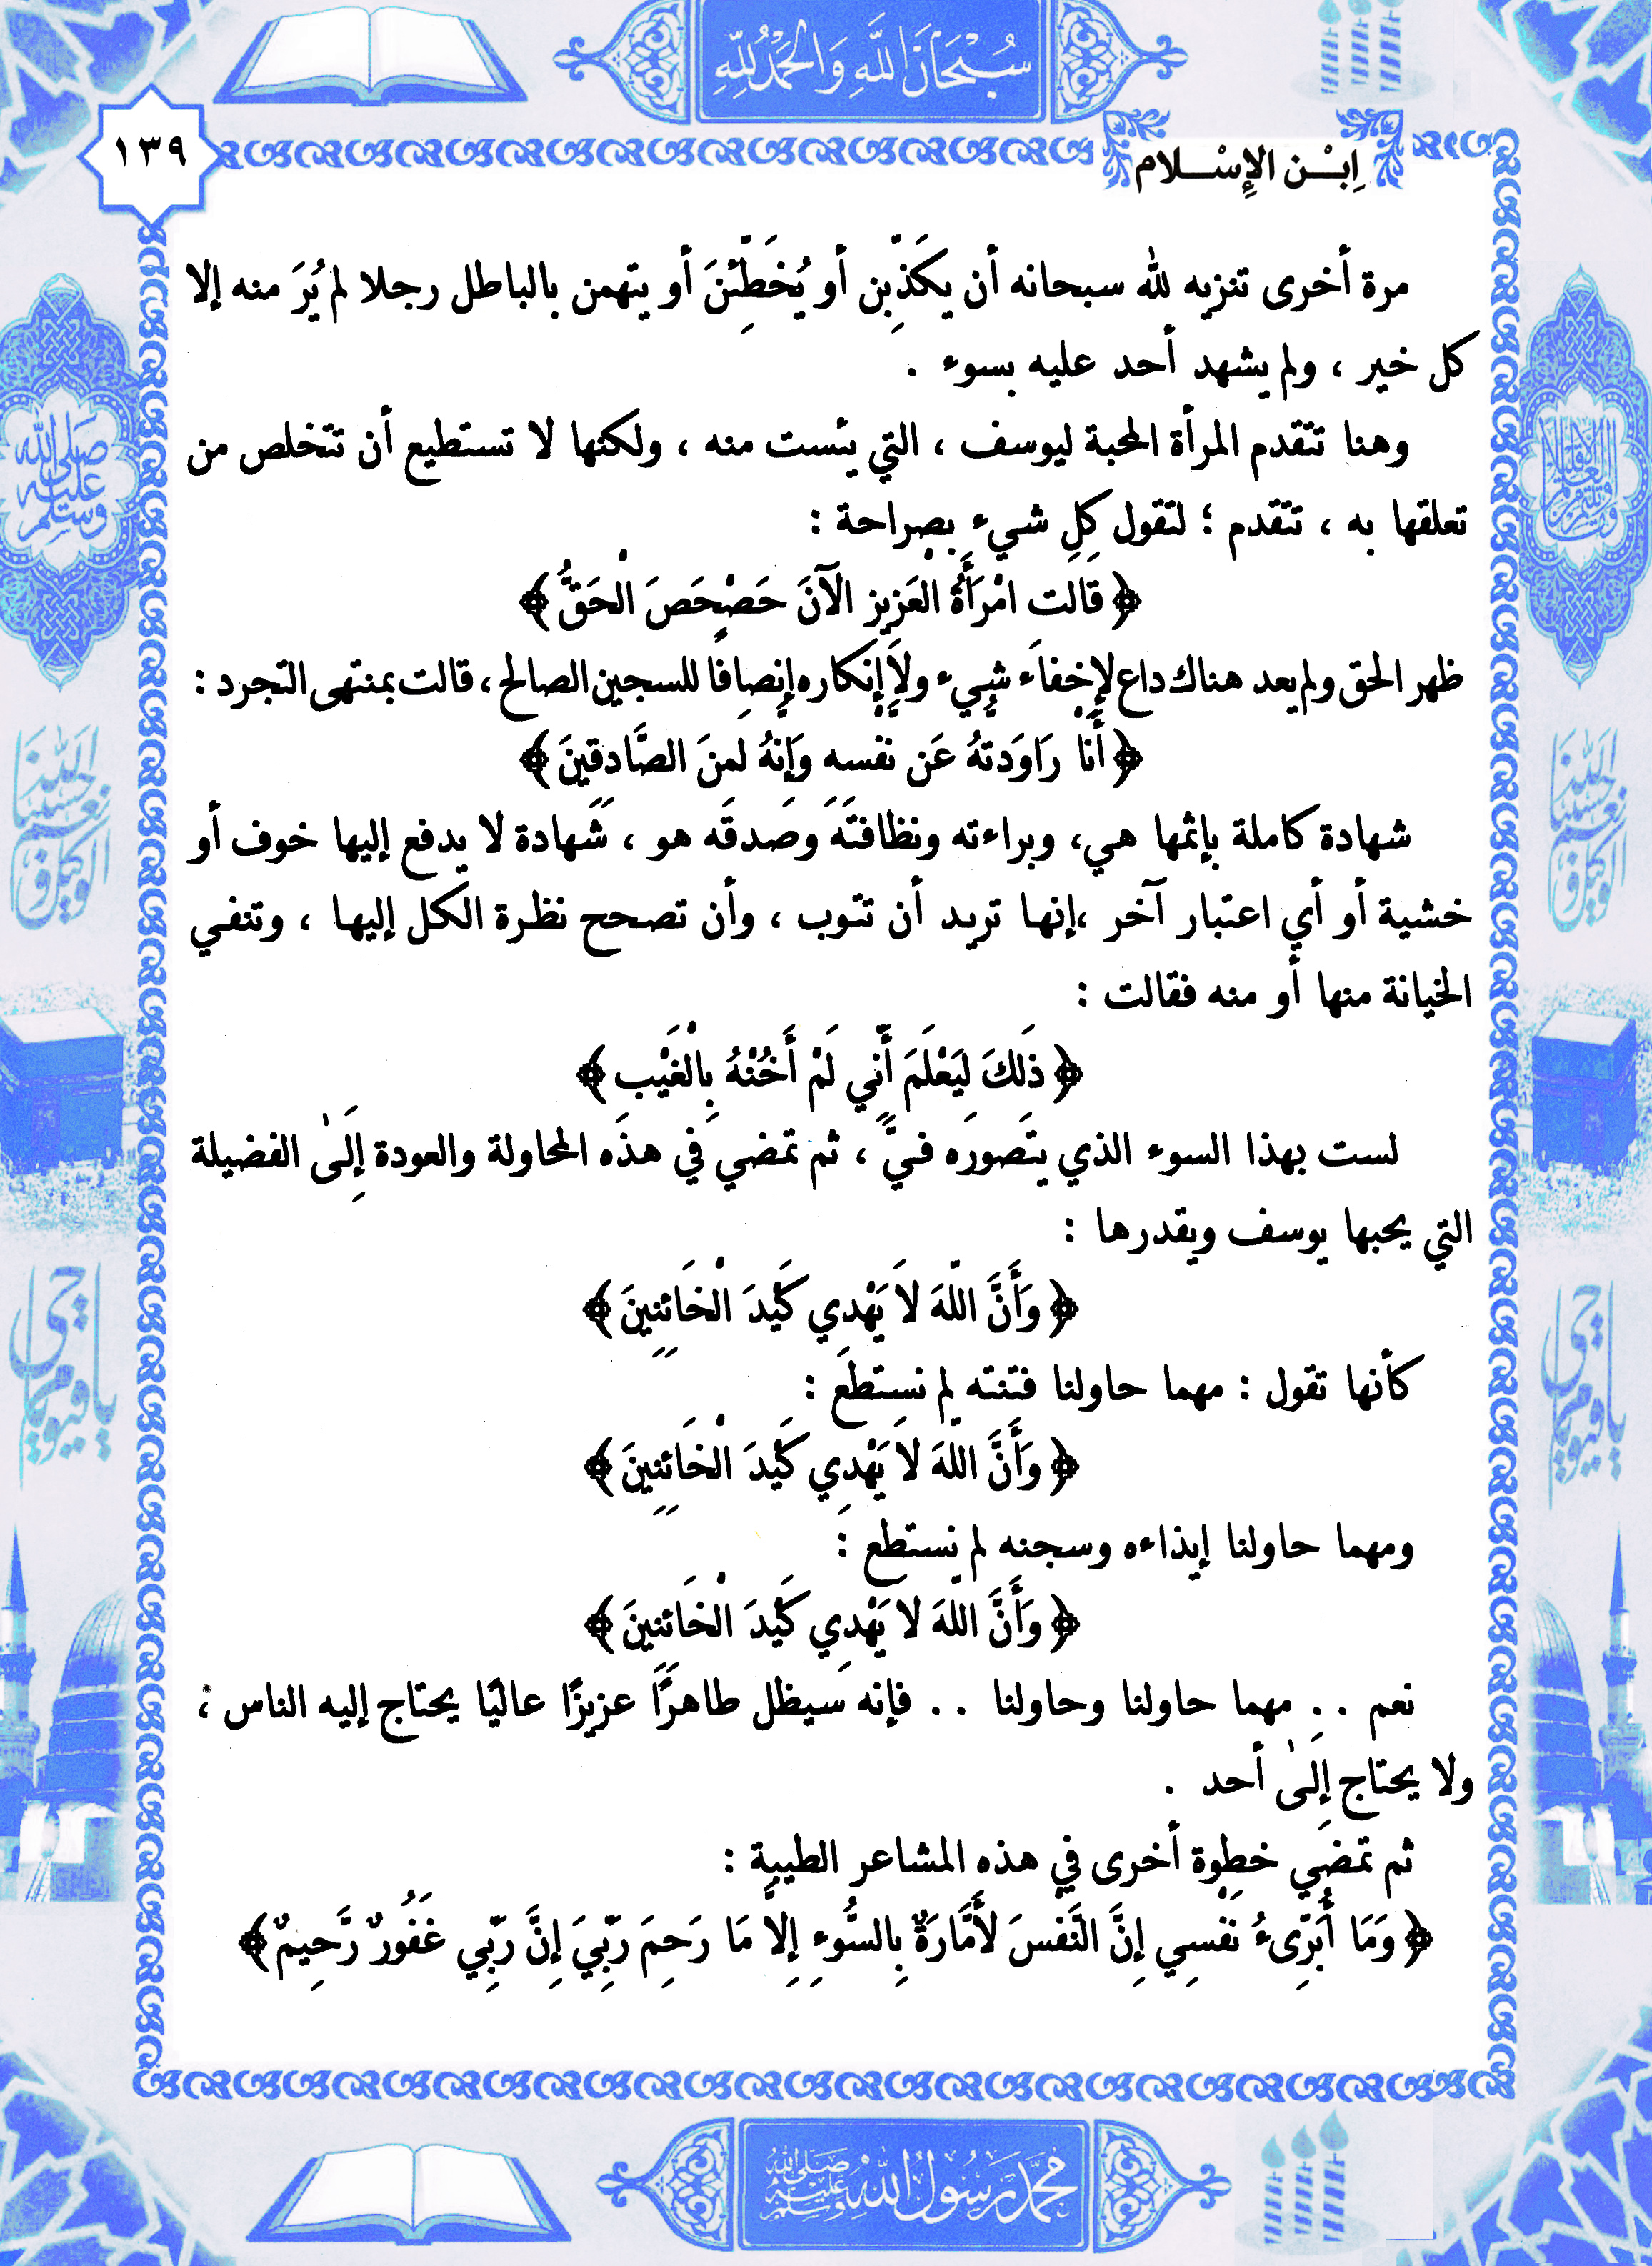 سُبْحَانَ اللَّهِ وَالحَمْدُ لِلَّهِ
١٣٩
اِبْـن الإِسْـلام
مرة أخرى تنزيه لله سبحانه أن يكَذِّبن أو يُخَطِّئنَ أو يتهمن بالباطل رجلا لم يُرَ منه إلا
كل خير ، ولم يشهد أحد عليه بسوء .
وهنا تتقدم المرأة المحبة ليوسف ، التي يئست منه ، ولكنها لا تستطيع أن تتخلص من
تعلقها به ، تتقدم ؛ لتقول كل شيء بصراحة :
﴿ قَالَتِ امْرَأَةُ الْعَزِيزِ الْآنَ حَصْحَصَ الْحَقُّ ﴾
ظهر الحق ولم يعد هناك داع لإخفاء شيء ولا إنكاره إنصافًا للسجين الصالح ، قالت بمنتهى التجرد :
﴿ أَنَاْ رَاوَدتُّهُ عَن نَّفْسِهِ وَإِنَّهُ لَمِنَ الصَّادِقِينَ ﴾
شهادة كاملة بإثمها هي، وبراءته ونظافته وصدقه هو ، شهادة لا يدفع إليها خوف أو
خشية أو أي اعتبار آخر ،إنهـا تريـد أن تتـوب ، وأن تصـحح نظـرة الكـل إليهـا ، وتنفـي
الخيانة منها أو منه فقالت :
﴿ ذَلِكَ لِيَعْلَمَ أَنِّي لَمْ أَخُنْهُ بِالْغَيْبِ ﴾
لست بهذا السوء الذي يتصوره فـيَّ ، ثم تمضي في هذه المحاولة والعودة إِلَىٰ الفضيلة
التي يحبها يوسف ويقدرها :
﴿ وَأَنَّ اللّهَ لاَ يَهْدِي كَيْدَ الْخَائِنِينَ ﴾
كأنها تقول : مهما حاولنا فتنته لم نستطع :
﴿ وَأَنَّ اللّهَ لاَ يَهْدِي كَيْدَ الْخَائِنِينَ ﴾
ومهما حاولنا إيذاءه وسجنه لم نستطع :
﴿ وَأَنَّ اللّهَ لاَ يَهْدِي كَيْدَ الْخَائِنِينَ ﴾
نعم . . مهما حاولنا وحاولنا . . فإنه سيظل طاهرًا عزيزًا عاليًا يحتاج إليه الناس ؛
ولا يحتاج إِلَىٰ أحد .
ثم تمضي خطوة أخرى في هذه المشاعر الطيبة :
﴿ وَمَا أُبَرِّىءُ نَفْسِي إِنَّ النَّفْسَ لأَمَّارَةٌ بِالسُّوءِ إِلاَّ مَا رَحِمَ رَبِّيَ إِنَّ رَبِّي غَفُورٌ رَّحِيمٌ ﴾
صلى الله عليه وسلم
حسبنا الله نعم الوكيل
يا حي يا قيوم
حسبنا الله نعم الوكيل
يا حي يا قيوم
محمد رسول الله صلى الله عليه وسلم